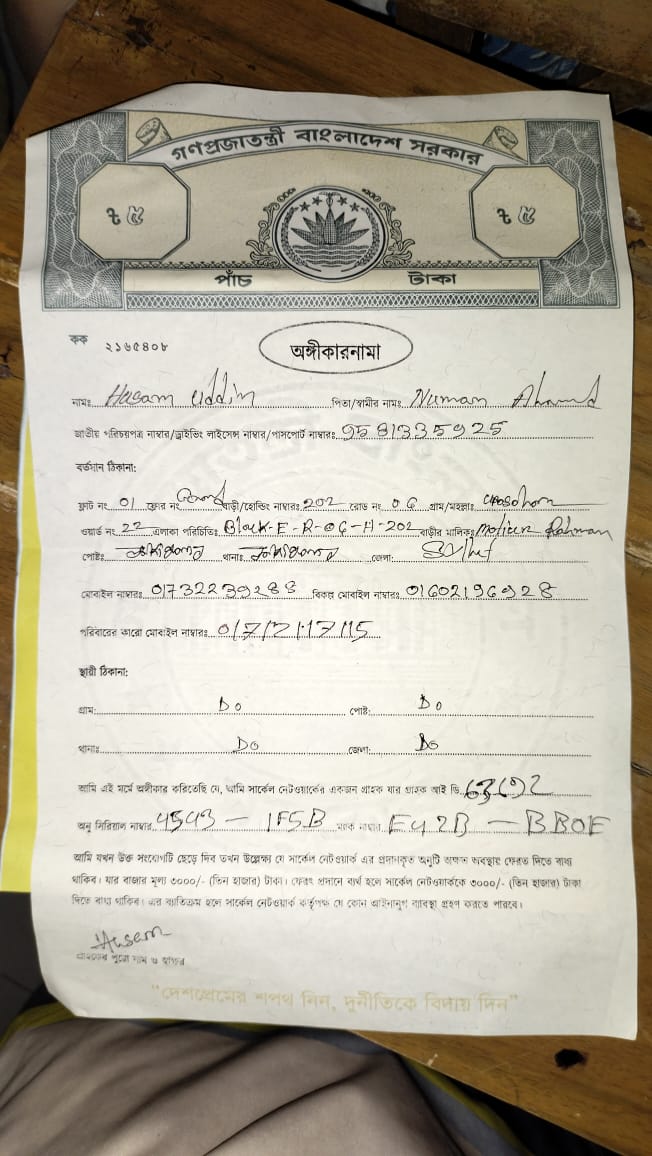 গণপ্রজাতন্ত্রী বাংলাদেশ সরকার
৳ ৫ ৳ ৫
পাঁচ টাকা
কক ২১৬৫৪০৮
অঙ্গীকারনামা
নামঃ Hasam Uddin পিতা/স্বামীর নামঃ Numan Ahamd
জাতীয় পরিচয়পত্র নাম্বার/ড্রাইভিং লাইসেন্স নাম্বার/পাসপোর্ট নাম্বারঃ 9581335925
বর্তমান ঠিকানা:
ফ্ল্যাট নং 01 ফ্লোর নং বাড়ী/হোল্ডিং নাম্বারঃ 202 রোড নং 06 গ্রাম/মহল্লাঃ uposohor
ওয়ার্ড নং 22 এলাকা পরিচিতিঃ Block-E-R-06-H-202 বাড়ীর মালিকঃ Motiur Rahman
পোষ্টঃ থানাঃ জেলা: Sylhet
মোবাইল নাম্বারঃ 01732239288 বিকল্প মোবাইল নাম্বারঃ 01602196928
পরিবারের কারো মোবাইল নাম্বারঃ
স্থায়ী ঠিকানা:
গ্রাম: Do পোষ্ট: Do
থানাঃ Do জেলা: Do
আমি এই মর্মে অঙ্গীকার করিতেছি যে, আমি সার্কেল নেটওয়ার্কের একজন গ্রাহক যার গ্রাহক আই ডি
অনু সিরিয়াল নাম্বার 4543 - 1F5B ম্যাক নাম্বার E42B - BB0E
আমি যখন উক্ত সংযোগটি ছেড়ে দিব তখন উল্লেক্ষ্য যে সার্কেল নেটওয়ার্ক এর প্রদানকৃত অনুটি অক্ষত অবস্থায় ফেরত দিতে বাধ্য
থাকিব। যার বাজার মূল্য ৩০০০/- (তিন হাজার) টাকা। ফেরৎ প্রদানে ব্যর্থ হলে সার্কেল নেটওয়ার্ককে ৩০০০/- (তিন হাজার) টাকা
দিতে বাধ্য থাকিব। এর ব্যতিক্রম হলে সার্কেল নেটওয়ার্ক কর্তৃপক্ষ যে কোন আইনানুগ ব্যবস্থা গ্রহণ করতে পারবে।
Husam
গ্রাহকের পুরো নাম ও স্বাক্ষর
"দেশপ্রেমের শপথ নিন, দুর্নীতিকে বিদায় দিন"